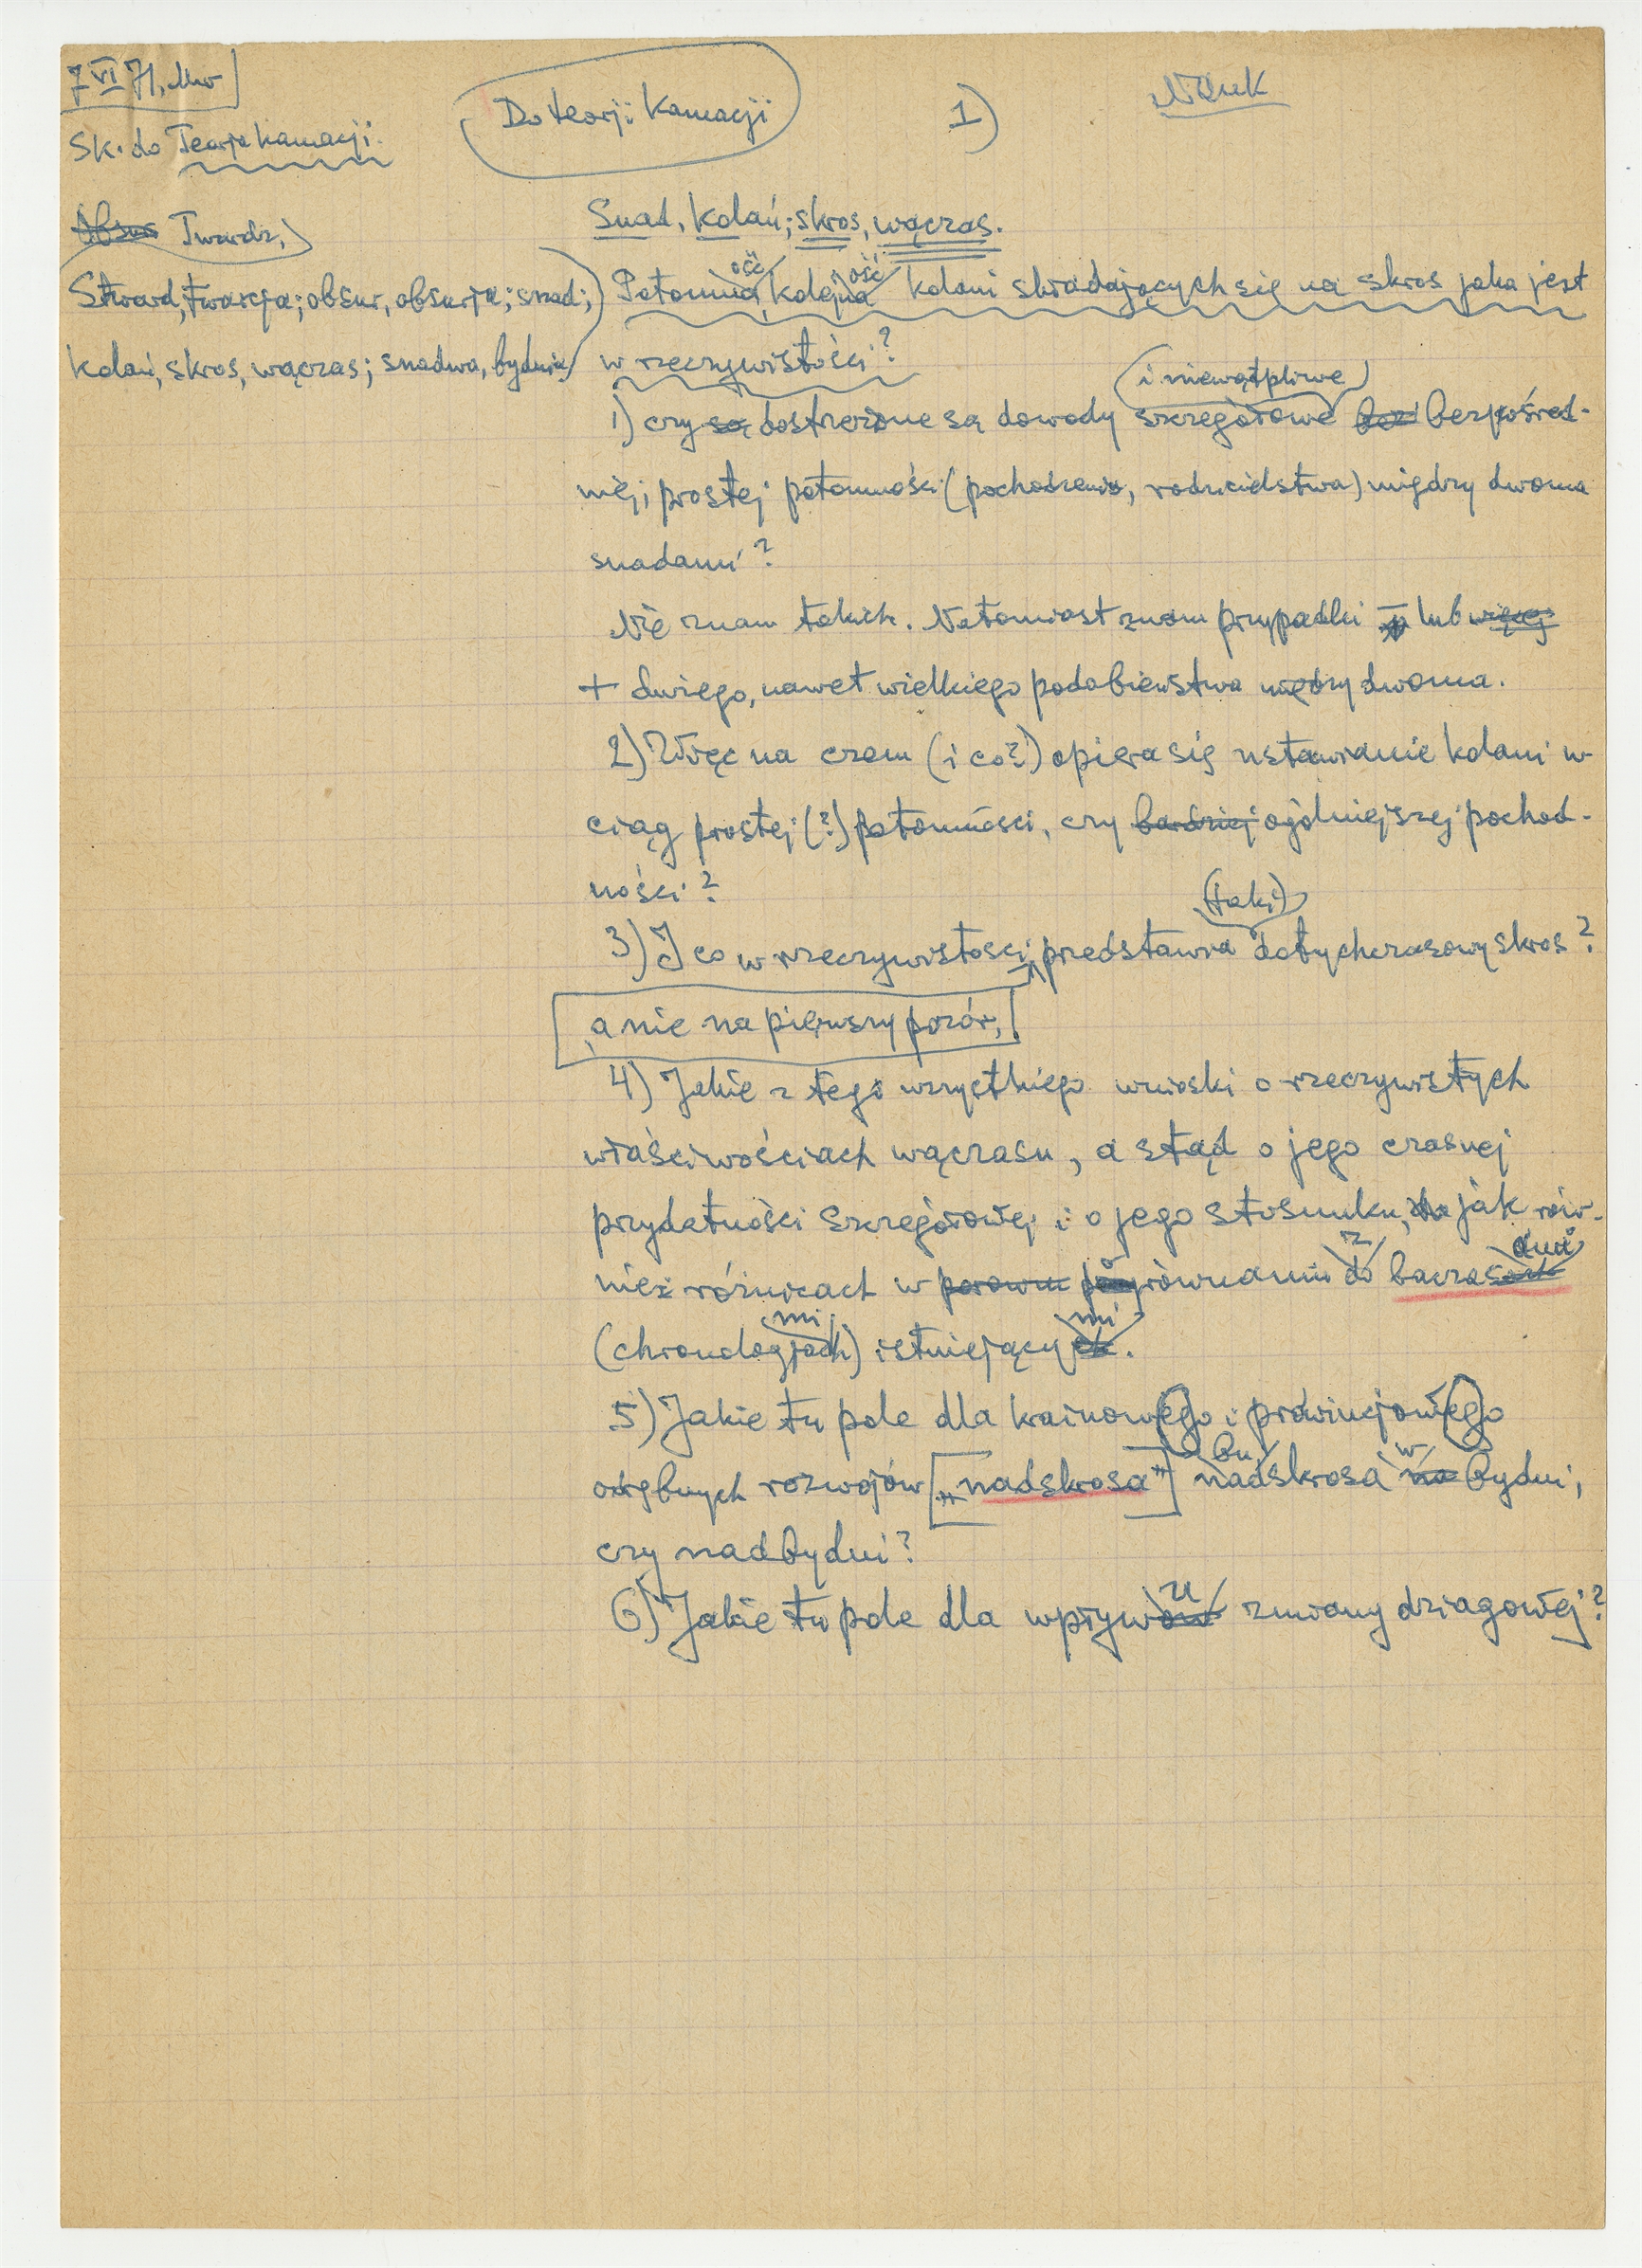 7 VI 71, Mw
Sk. do Teorja kamacji.
Do teorji kamacji
1)
Nauk
Obsur Twardz,
Stward, twarcja; obsur, obsurja; snad;
kolań, skros, wączas; snadwa, bydnia
Snad, kolań; skros, wączas.
Potomność, kolejność kolani składających się na skros jaka jest
w rzeczywistości?
(i niewątpliwe)
1) czy są dostrzeżone są dowody szczegółowe bez bezpośred-
niej, prostej potomności (pochodzenia, rodzicielstwa) między dwoma
snadami?
Nie znam takich. Natomiast znam przypadki lub więcej
+ dużego, nawet wielkiego podobieństwa między dwoma.
2) Więc na czem (i co?) opiera się ustawianie kolani w
ciąg prostej (?) potomności, czy bardziej ogólniejszej pochod-
ności?
(taki)
3) I co w rzeczywistości, przedstawia dotychczasowy skros?
a nie na pierwszy pozór,
4) Jakie z tego wszystkiego wnioski o rzeczywistych
właściwościach wączasu, a stąd o jego czasnej
przydatności szczegółowej i o jego stosunku, jak rów-
nież różnicach w porown porównaniu do z baczasami
(chronologjami) istniejącymi.
5) Jakie tu pole dla krainowego i prowincjowego
odrębnych rozwojów ["nadskrosa"] nadskrosa na w bydni,
czy nadbydni?
6) Jakie tu pole dla wpływu zmiany dziagowej?